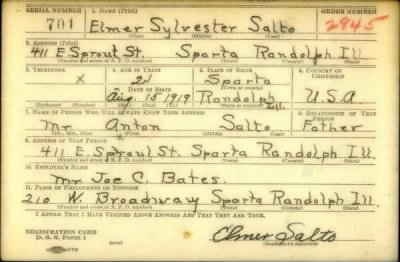 SERIAL NUMBER 1. NAME (Print) ORDER NUMBER
701 Elmer Sylvester Salto 2845
(First) (Middle) (Last)
2. ADDRESS (Print)
411 E Sprout St. Sparta Randolph Ill.
(Number and street or R. F. D. number) (Town) (County) (State)
3. TELEPHONE 4. AGE IN YEARS 5. PLACE OF BIRTH 6. COUNTRY OF CITIZENSHIP
X 21 Sparta
(Town or county)
DATE OF BIRTH
Aug. 15 1919 Randolph Ill. U.S.A
(Exchange) (Number) (Mo.) (Day) (Yr.) (State or country)
7. NAME OF PERSON WHO WILL ALWAYS KNOW YOUR ADDRESS 8. RELATIONSHIP OF THAT PERSON
Mr. Anton Salto Father
(Mr., Mrs., Miss) (First) (Middle) (Last)
9. ADDRESS OF THAT PERSON
411 E. Sprout St. Sparta Randolph Ill.
(Number and street or R. F. D. number) (Town) (County) (State)
10. EMPLOYER'S NAME
Mr. Joe C. Bates
11. PLACE OF EMPLOYMENT OR BUSINESS
210 W. Broadway Sparta Randolph Ill.
(Number and street or R. F. D. number) (Town) (County) (State)
I AFFIRM THAT I HAVE VERIFIED ABOVE ANSWERS AND THAT THEY ARE TRUE.
REGISTRATION CARD
D. S. S. Form 1
Elmer Salto
(Registrant's signature)